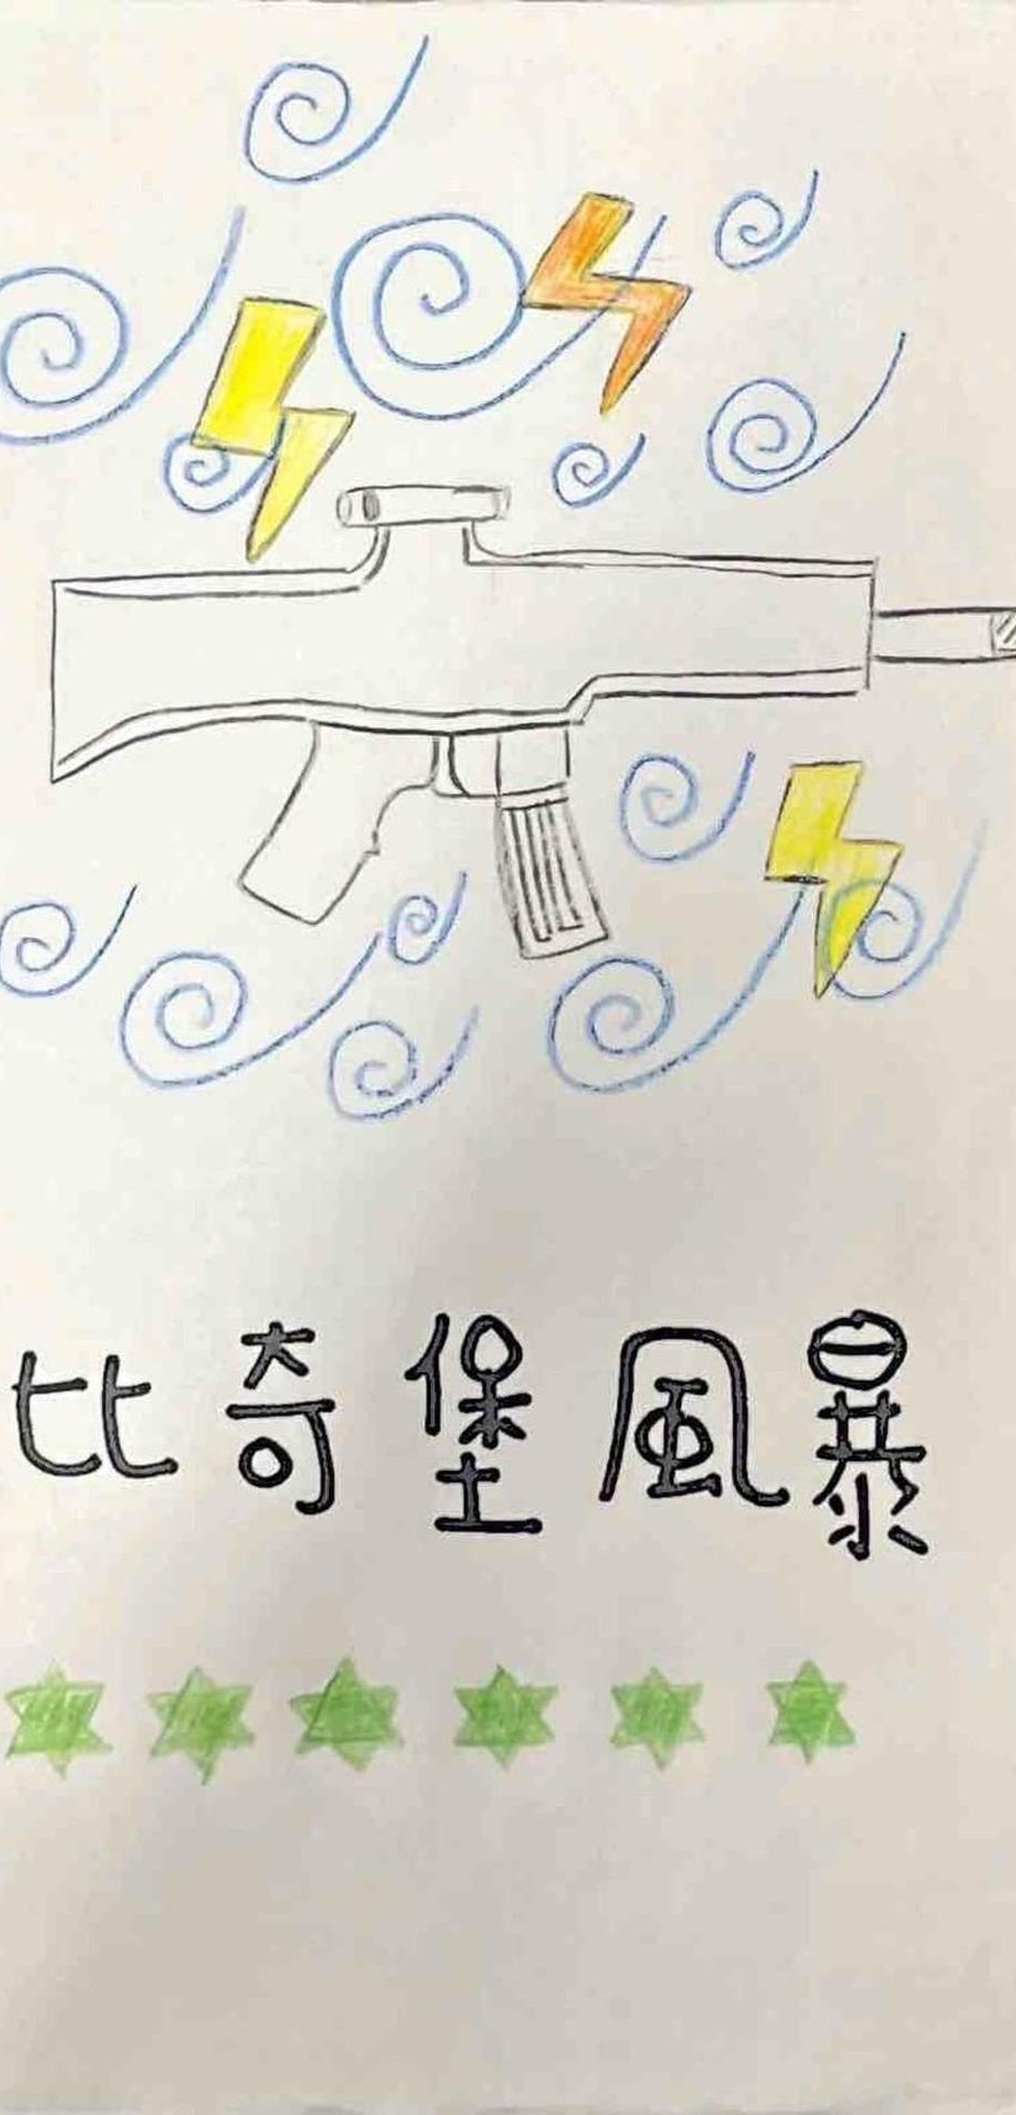 比奇堡風暴